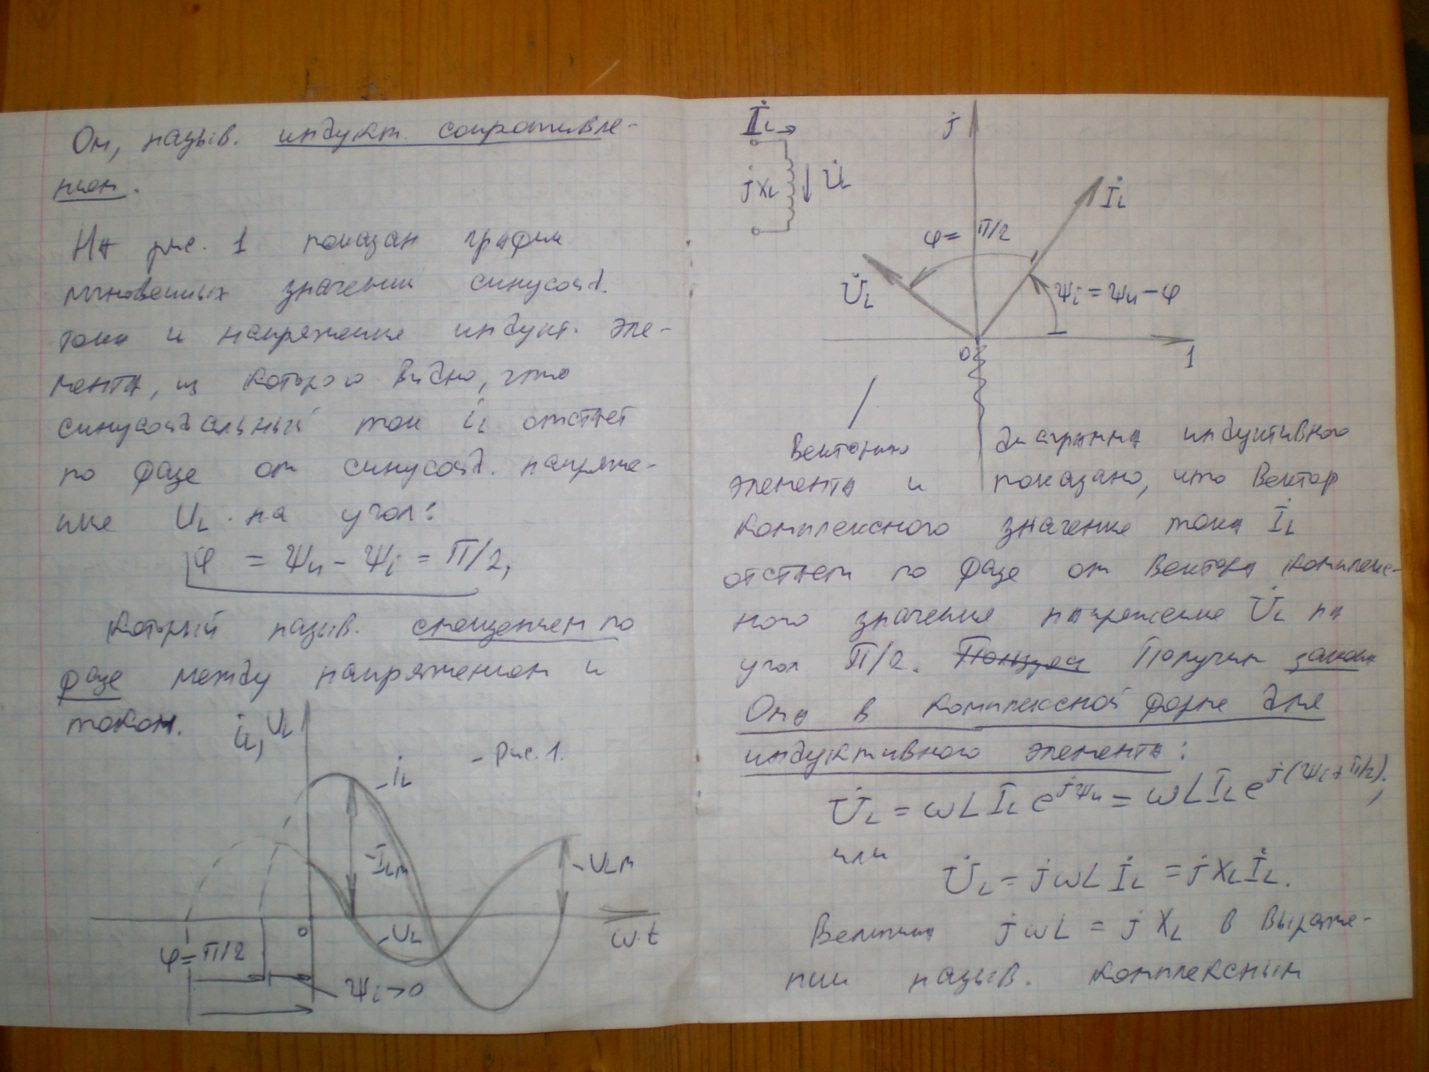 Ом, назыв. индукт. сопротивле-
нием.
На рис. 1 показан график
мгновенных значений синусоид.
тока и напряжения индукт. эле-
мента, из которого видно, что
синусоидальный ток iL отстает
по фазе от синусоид. напряже-
ния UL на угол:
φ = Ψu - Ψi = π/2,
который назыв. смещением по
фазе между напряжением и
током.
iL, UL
- Рис. 1.
- iL
- ILм
- ULм
- UL
0
ωt
φ = π/2
Ψi > 0
İL
jXL
U̇L
j
İL
φ = π/2
U̇L
Ψi = Ψu - φ
0
1
Векторная диаграмма индуктивного
элемента и показано, что вектор
комплексного значения тока İL
отстает по фазе от вектора комплекс-
ного значения напряжения U̇L на
угол π/2. Получим закон
Ома в комплексной форме для
индуктивного элемента:
U̇L = ωL IL e^jΨu = ωL IL e^j(Ψi + π/2),
или
U̇L = jωL İL = jXL İL.
Величина jωL = jXL в выраже-
нии назыв. комплексным